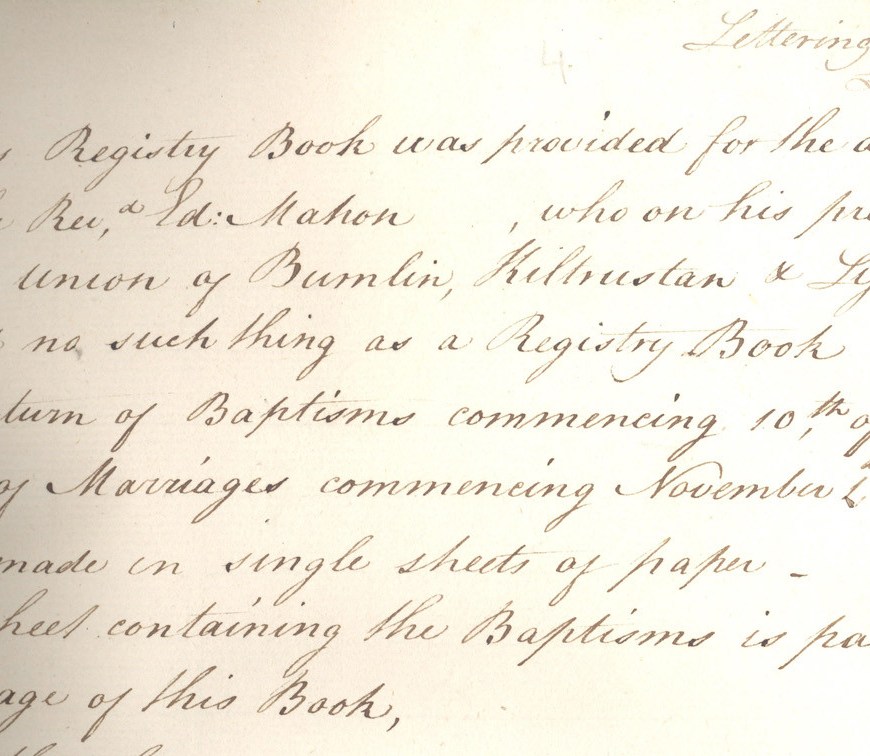 Lettering
4.
s Registry Book was provided for the a
Rev,d Ed: Mahon , who on his pre
union of Bumlin, Kiltrustan & Ly
no such thing as a Registry Book
turn of Baptisms commencing 10,th of
of Marriages commencing November
made in single sheets of paper -
heet containing the Baptisms is pa
age of this Book,